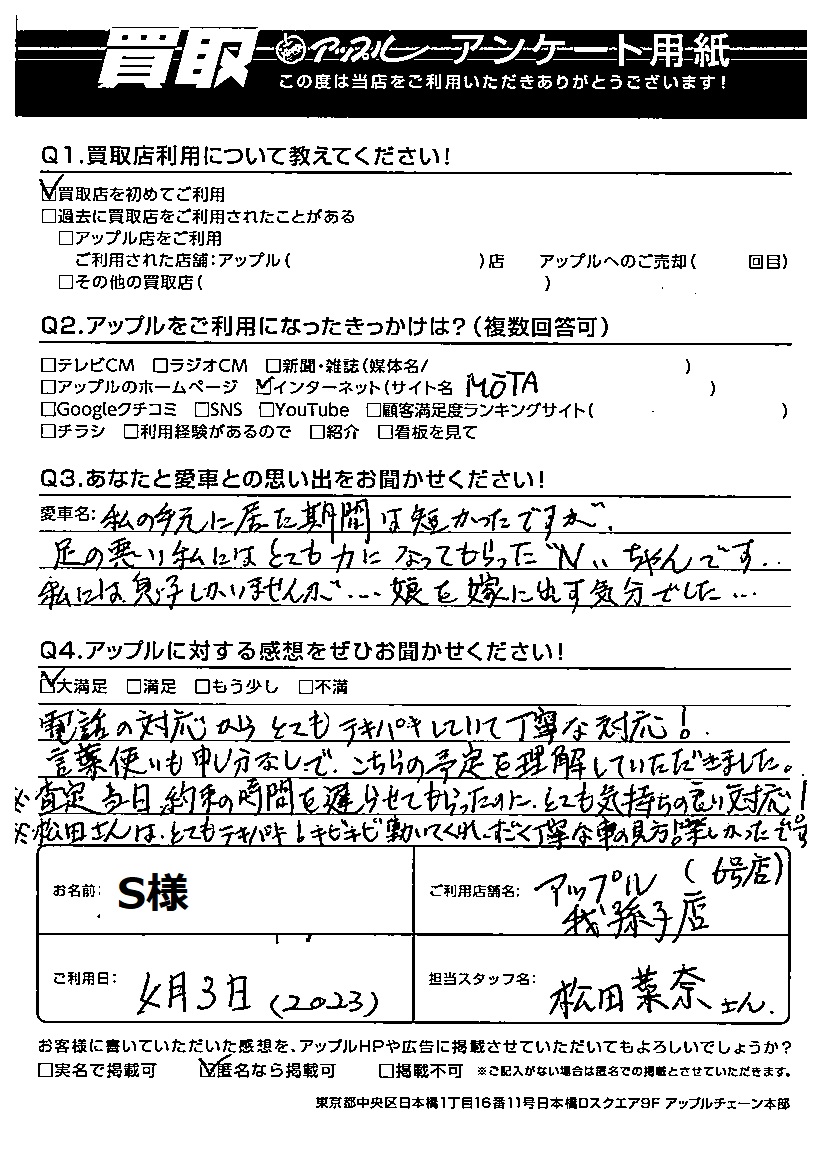 買取 アップル アンケート用紙
この度は当店をご利用いただきありがとうございます!
Q1.買取店利用について教えてください!
☑買取店を初めてご利用
□過去に買取店をご利用されたことがある
□アップル店をご利用
ご利用された店舗:アップル( )店 アップルへのご売却( 回目)
□その他の買取店( )
Q2.アップルをご利用になったきっかけは?(複数回答可)
□テレビCM □ラジオCM □新聞・雑誌(媒体名/ )
□アップルのホームページ ☑インターネット(サイト名 MōTA )
□Googleクチコミ □SNS □YouTube □顧客満足度ランキングサイト( )
□チラシ □利用経験があるので □紹介 □看板を見て
Q3.あなたと愛車との思い出をお聞かせください!
愛車名: 私の手元に居た期間は短かったですが、
足の悪い私にはとても力になってもらった"N"ちゃんです..
私には息子しかいませんが… 娘を嫁に出す気分でした…
Q4.アップルに対する感想をぜひお聞かせください!
☑大満足 □満足 □もう少し □不満
電話の対応からとてもテキパキしていて丁寧な対応!
言葉使いも申し分なしで、こちらの予定を理解していただきました。
※査定当日約束の時間を遅らせてもらったのに、とても気持ちの良い対応!
※松田さんは、とてもテキパキ!キビキビ動いてくれ、丁寧な車の見方!楽しかったです
お名前: S様
ご利用店舗名: アップル (6号店)
我孫子店
ご利用日: 4月3日 (2023)
担当スタッフ名: 松田菜奈さん.
お客様に書いていただいた感想を、アップルHPや広告に掲載させていただいてもよろしいでしょうか?
□実名で掲載可 ☑匿名なら掲載可 □掲載不可 ※ご記入がない場合は匿名での掲載とさせていただきます。
東京都中央区日本橋1丁目16番11号日本橋Dスクエア9F アップルチェーン本部